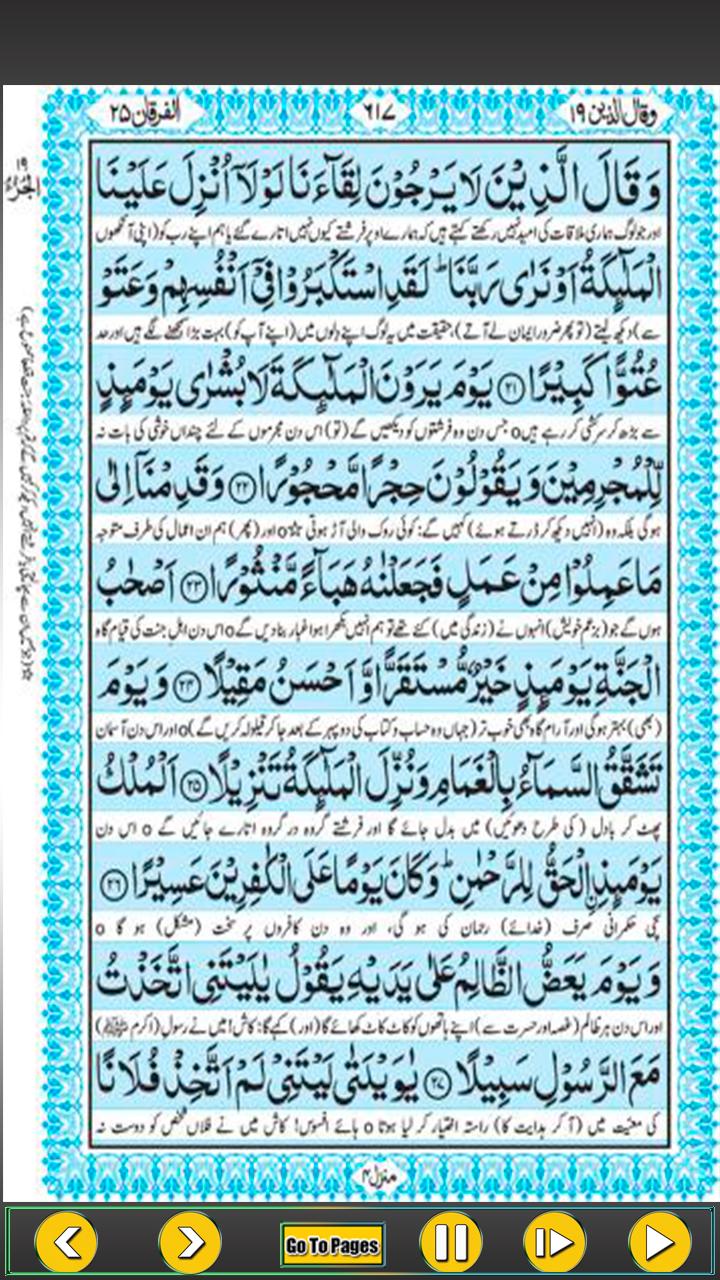 وقال الذین ۱۹ ٦١٧ الفرقان ۲۵
۱۹
الجزء
وَقَالَ الَّذِيْنَ لَا يَرْجُوْنَ لِقَآءَنَا لَوْلَآ اُنْزِلَ عَلَيْنَا
اور جو لوگ ہماری ملاقات کی امید نہیں رکھتے کہتے ہیں کہ ہمارے اوپر فرشتے کیوں نہیں اتارے گئے یا ہم اپنے رب کو (اپنی آنکھوں
الْمَلٰٓئِكَةُ اَوْ نَرٰى رَبَّنَا ؕ لَقَدِ اسْتَكْبَرُوْا فِيْٓ اَنْفُسِهِمْ وَعَتَوْ
سے) دیکھ لیتے (تو پھر ضرور ایمان لے آتے)، حقیقت میں یہ لوگ اپنے دلوں میں (اپنے آپ کو) بہت بڑا سمجھنے لگے ہیں اور حد
عُتُوًّا كَبِيْرًا ﴿۲۱﴾ يَوْمَ يَرَوْنَ الْمَلٰٓئِكَةَ لَا بُشْرٰى يَوْمَئِذٍ
سے بڑھ کر سرکشی کر رہے ہیںo جس دن وہ فرشتوں کو دیکھیں گے (تو) اس دن مجرموں کے لئے چنداں خوشی کی بات نہ
لِّلْمُجْرِمِيْنَ وَيَقُوْلُوْنَ حِجْرًا مَّحْجُوْرًا ﴿۲۲﴾ وَقَدِمْنَآ اِلٰى
ہوگی بلکہ وہ (انہیں دیکھ کر ڈرتے ہوئے) کہیں گے: کوئی روک والی آڑ ہوتی ☆o اور (پھر) ہم ان اعمال کی طرف متوجہ
مَا عَمِلُوْا مِنْ عَمَلٍ فَجَعَلْنٰهُ هَبَآءً مَّنْثُوْرًا ﴿۲۳﴾ اَصْحٰبُ
ہوں گے جو (بزعمِ خویش) انہوں نے (زندگی میں) کئے تھے تو ہم انہیں بکھرا ہوا غبار بنا دیں گےo اس دن اہلِ جنت کی قیام گاہ
الْجَنَّةِ يَوْمَئِذٍ خَيْرٌ مُّسْتَقَرًّا وَّاَحْسَنُ مَقِيْلًا ﴿۲۴﴾ وَيَوْمَ
(بھی) بہتر ہوگی اور آرام گاہ بھی خوب تر (جہاں وہ حساب و کتاب کی دوپہر کے بعد جا کر قیلولہ کریں گے)o اور اس دن آسمان
تَشَقَّقُ السَّمَآءُ بِالْغَمَامِ وَنُزِّلَ الْمَلٰٓئِكَةُ تَنْزِيْلًا ﴿۲۵﴾ اَلْمُلْكُ
پھٹ کر بادل (کی طرح دھوئیں) میں بدل جائے گا اور فرشتے گروہ در گروہ اتارے جائیں گے o اس دن
يَوْمَئِذِ ۨالْحَقُّ لِلرَّحْمٰنِ ؕ وَكَانَ يَوْمًا عَلَى الْكٰفِرِيْنَ عَسِيْرًا ﴿۲۶﴾
سچی حکمرانی صرف (خدائے) رحمان کی ہو گی، اور وہ دن کافروں پر سخت (مشکل) ہو گا o
وَيَوْمَ يَعَضُّ الظَّالِمُ عَلٰى يَدَيْهِ يَقُوْلُ يٰلَيْتَنِى اتَّخَذْتُ
اور اس دن ہر ظالم (غصہ اور حسرت سے) اپنے ہاتھوں کو کاٹ کاٹ کھائے گا (اور) کہے گا: کاش! میں نے رسولِ (اکرم ﷺ)
مَعَ الرَّسُوْلِ سَبِيْلًا ﴿۲۷﴾ يٰوَيْلَتٰى لَيْتَنِيْ لَمْ اَتَّخِذْ فُلَانًا
کی معیت میں (آ کر ہدایت کا) راستہ اختیار کر لیا ہوتا o ہائے افسوس! کاش میں نے فلاں شخص کو دوست نہ
منزل ۴
Go To Pages